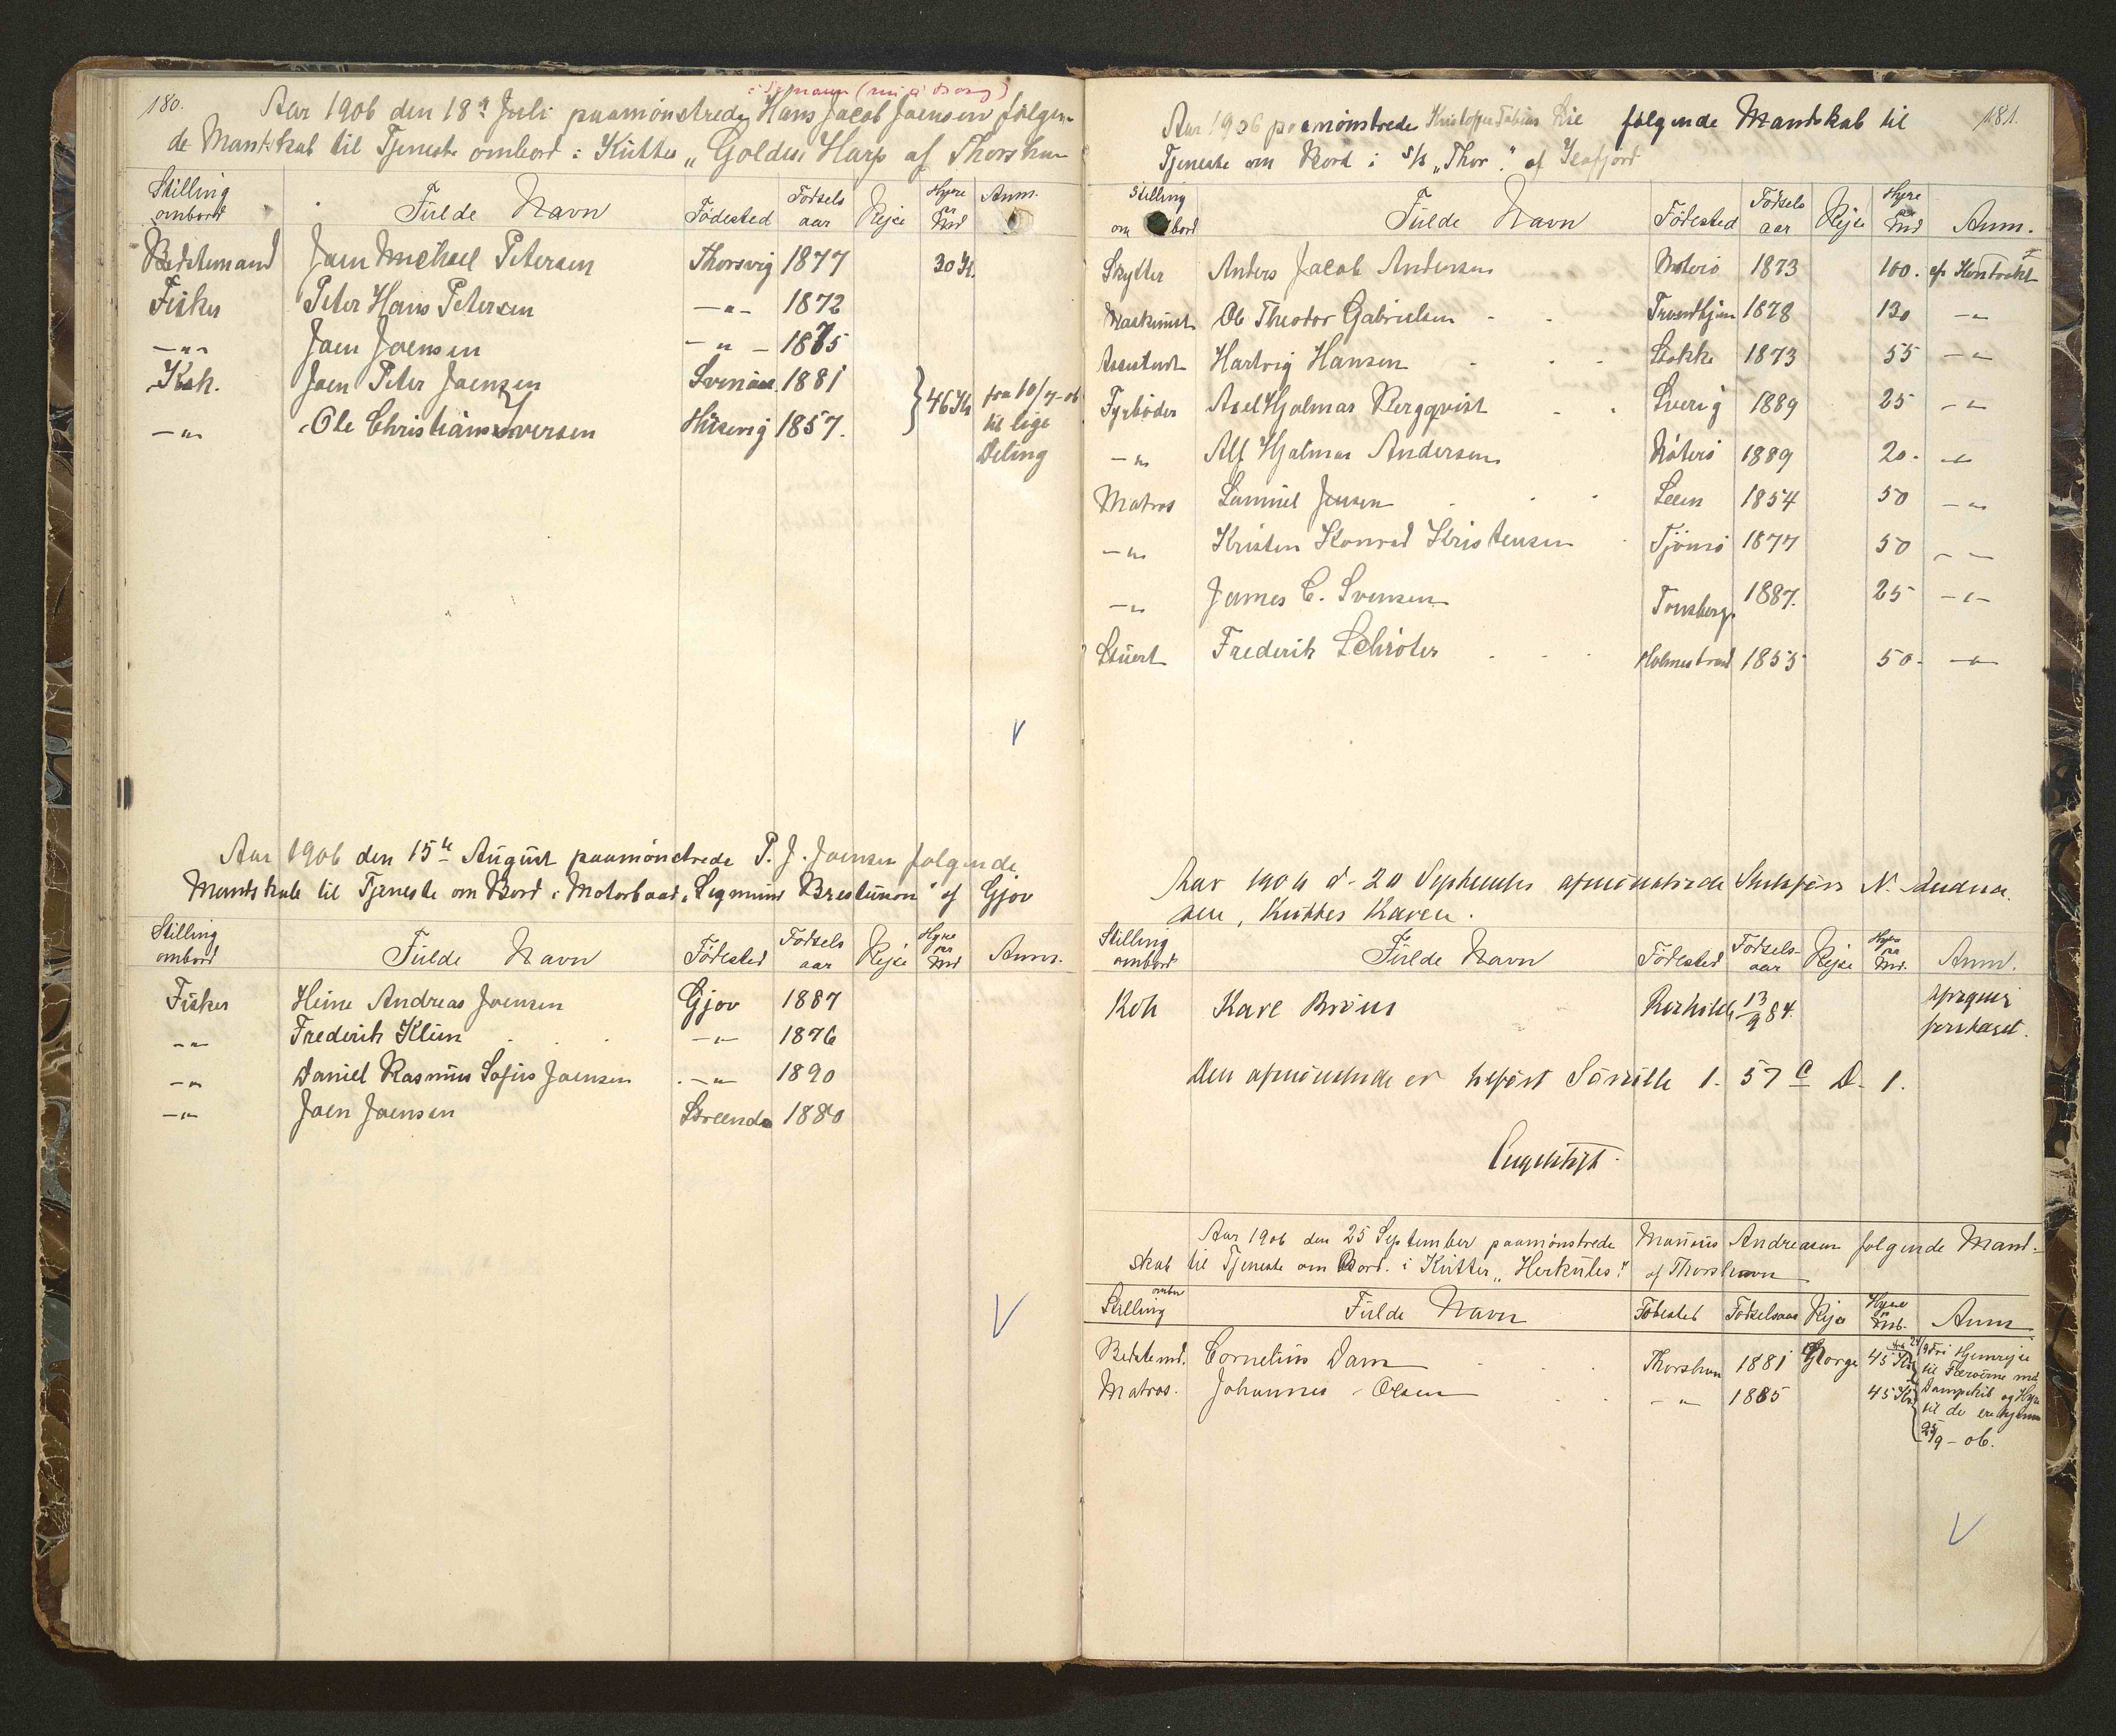 180.
Aar 1906 den 18de Juli paamönstrede Hans Jacob Joensen følgen-
de Mandskab til Tjeneste ombord i Kutter „Golden Harp af Thorshavn
Stilling ombord Fulde Navn Födested Födsels aar Rejse Hyre pr Md Anm.
Bedstemand Joen Michael Petersen Thorsvig 1877 30 Kr.
Fisker Peter Hans Petersen — " — 1872
— " — Joen Joensen — " — 1875
Kok. Joen Peter Joensen Svinaa. 1881 46 Kr fra 10/7-06
— " — Ole Christian Iversen Husevig 1857. til lige
Deling
V
Aar 1906 den 15de August paamönstrede P. J. Joensen følgende
Mandskab til Tjeneste om Bord i Motorbaad „Sigmund Bresteson" af Gjov
Stilling ombord Fulde Navn Födested Födsels aar Rejse Hyre pr Md Anm.
Fisker Heine Andreas Joensen Gjov 1887
— " — Frederik Klein — " — 1876
— " — Daniel Rasmus Sofus Joensen — " — 1890
— " — Joen Joensen 1880
V
181.
Aar 1906 paamönstrede Kristoffer Tobias følgende Mandskab til
Tjeneste om Bord i S/S „Thor." af
Stilling om bord Fulde Navn Födested Födsels aar Rejse Hyre pr Md Anm.
Skytter Anders Jacob Andersen Nøterö 1873 100. ef. Kontrakt
Maskinist Ole Theodor Gabrielsen Trondhjem 1878 130 — " —
Assistent Hartvig Hansen Stokke 1873 55 — " —
Fyrböder Axel Hjalmar Bergqvist Sverig 1889 25 — " —
— " — Alf Hjalmar Andersen Nöterö 1889 20. — " —
Matros Samuel Jensen Seem 1854 50 — " —
— " — Kristen Konrad Kristensen Tjömö 1877 50 — —
— " — James C. Svensen Tonsberg 1887. 25 — " —
Stuert Frederik Schröter Holmestrand 1855 50. — " —
Aar 1906 d. 20 September afmönstrede Skipper N. Andrea-
sen, Kutter Karen.
Stilling ombord Fulde Navn Födested Födsels- aar Rejse Hyre pr Md. Anm.
Kok Karl Roskilde 13/9 84.
Den afmönstrede er befört Sörulle 1. 57 C D. 1.
Aar 1906 den 25 September paamönstrede Maurus Andreasen følgende Mand-
skab til Tjeneste om Bord. i Kutter „Herkules" af Thorshavn
Stilling ombor Fulde Navn Födested Födselsaar Rejse Hyre pr Md. Anm
Bedstemd. Cornelius Dam Thorshavn 1881 Norge 45 Kr Fri Hjemrejse
til Færöerne med
Matros. Johannes Olsen — " — 1885 45 Kr Dampskib og Hyre
til de ere hjemme
25/9-06.
V